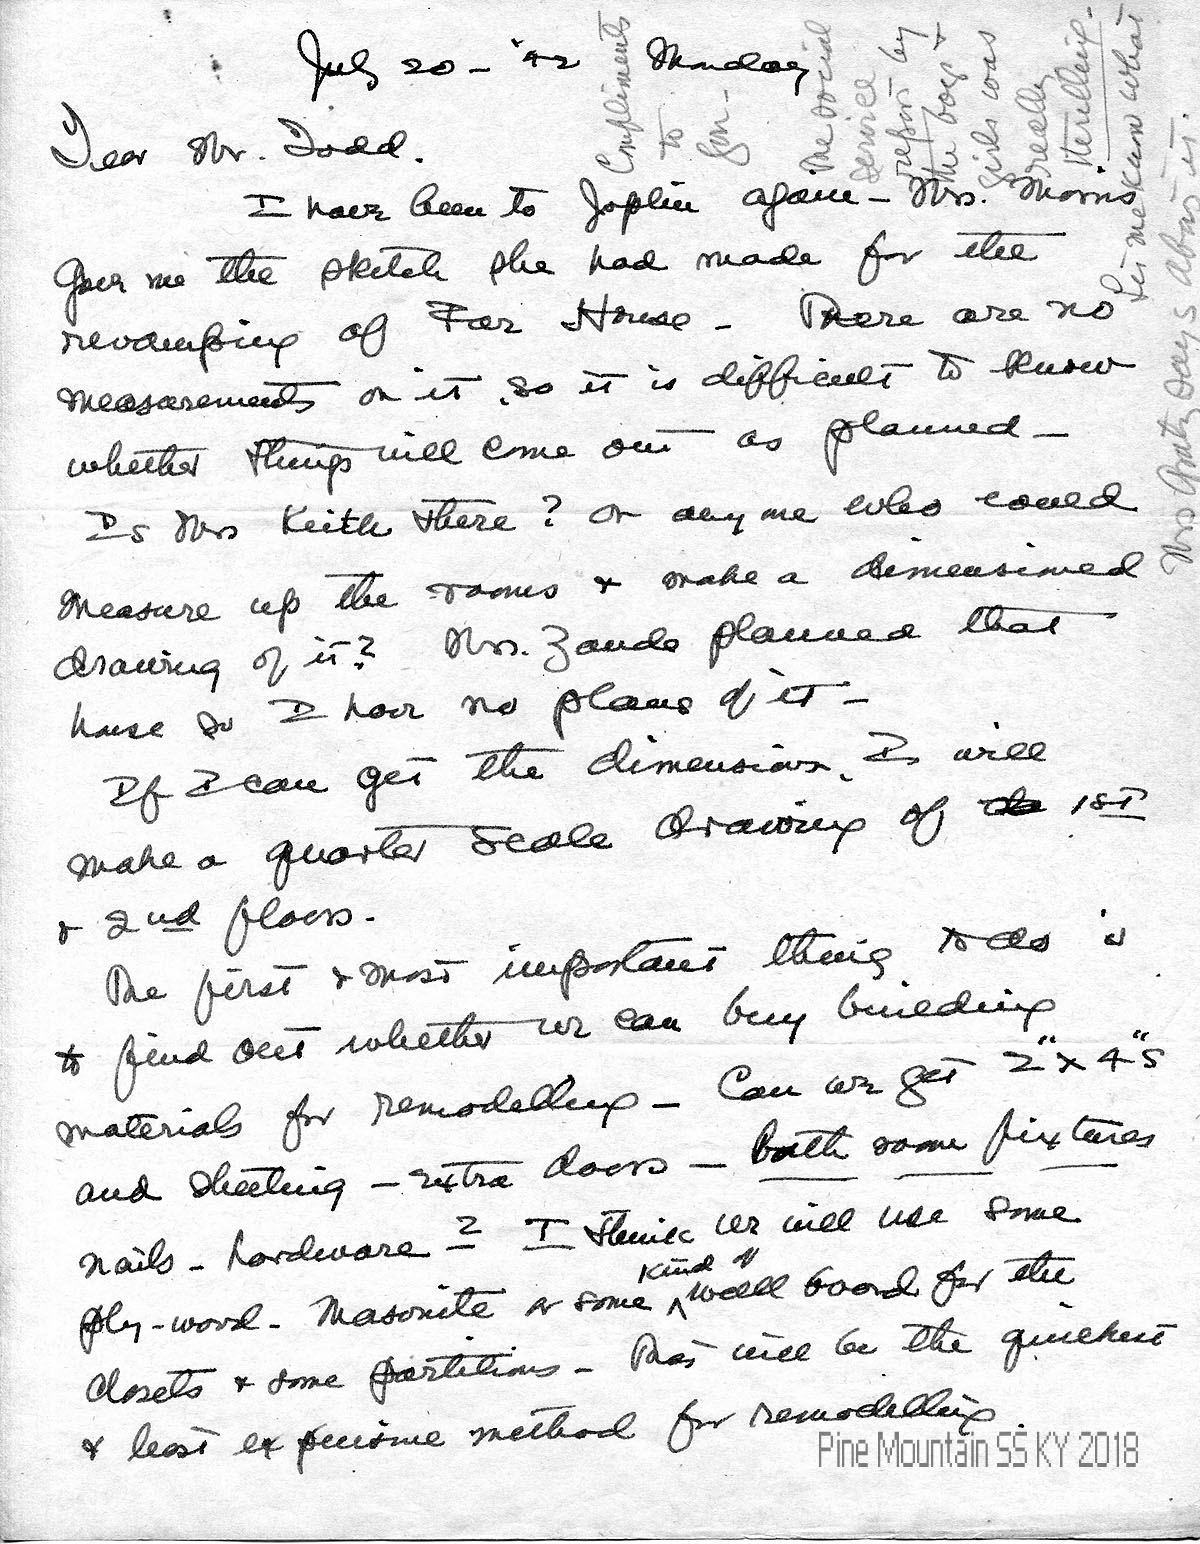 July 20 - '42 Monday
Dear Mr. Todd.
I have been to Joplin again - Mrs. Morris
gave me the sketch she had made for the
revamping of Far House - There are no
measurements on it, so it is difficult to know
whether things will come out as planned -
Is Mrs Keith there? or any one who could
measure up the rooms & make a dimensioned
drawing of it? Mrs. Zande planned that
house so I have no plans of it -
If I can get the dimensions, I will
make a quarter scale drawing of 1st
& 2nd floors.
The first & most important thing to do is
to find out whether we can buy building
materials for remodelling - Can we get 2" x 4"s
and sheeting - extra doors - bath room fixtures
nails - hardware - ? I think we will use some
ply-wood - Masonite or some kind of wall board for the
closets & some partitions - This will be the quickest
& least expensive method for remodelling.
Compliments
to
you -
The social
service
report by
the boys &
girls was
really
thrilling -
Let me know what
Mrs says about it.
Pine Mountain SS KY 2018